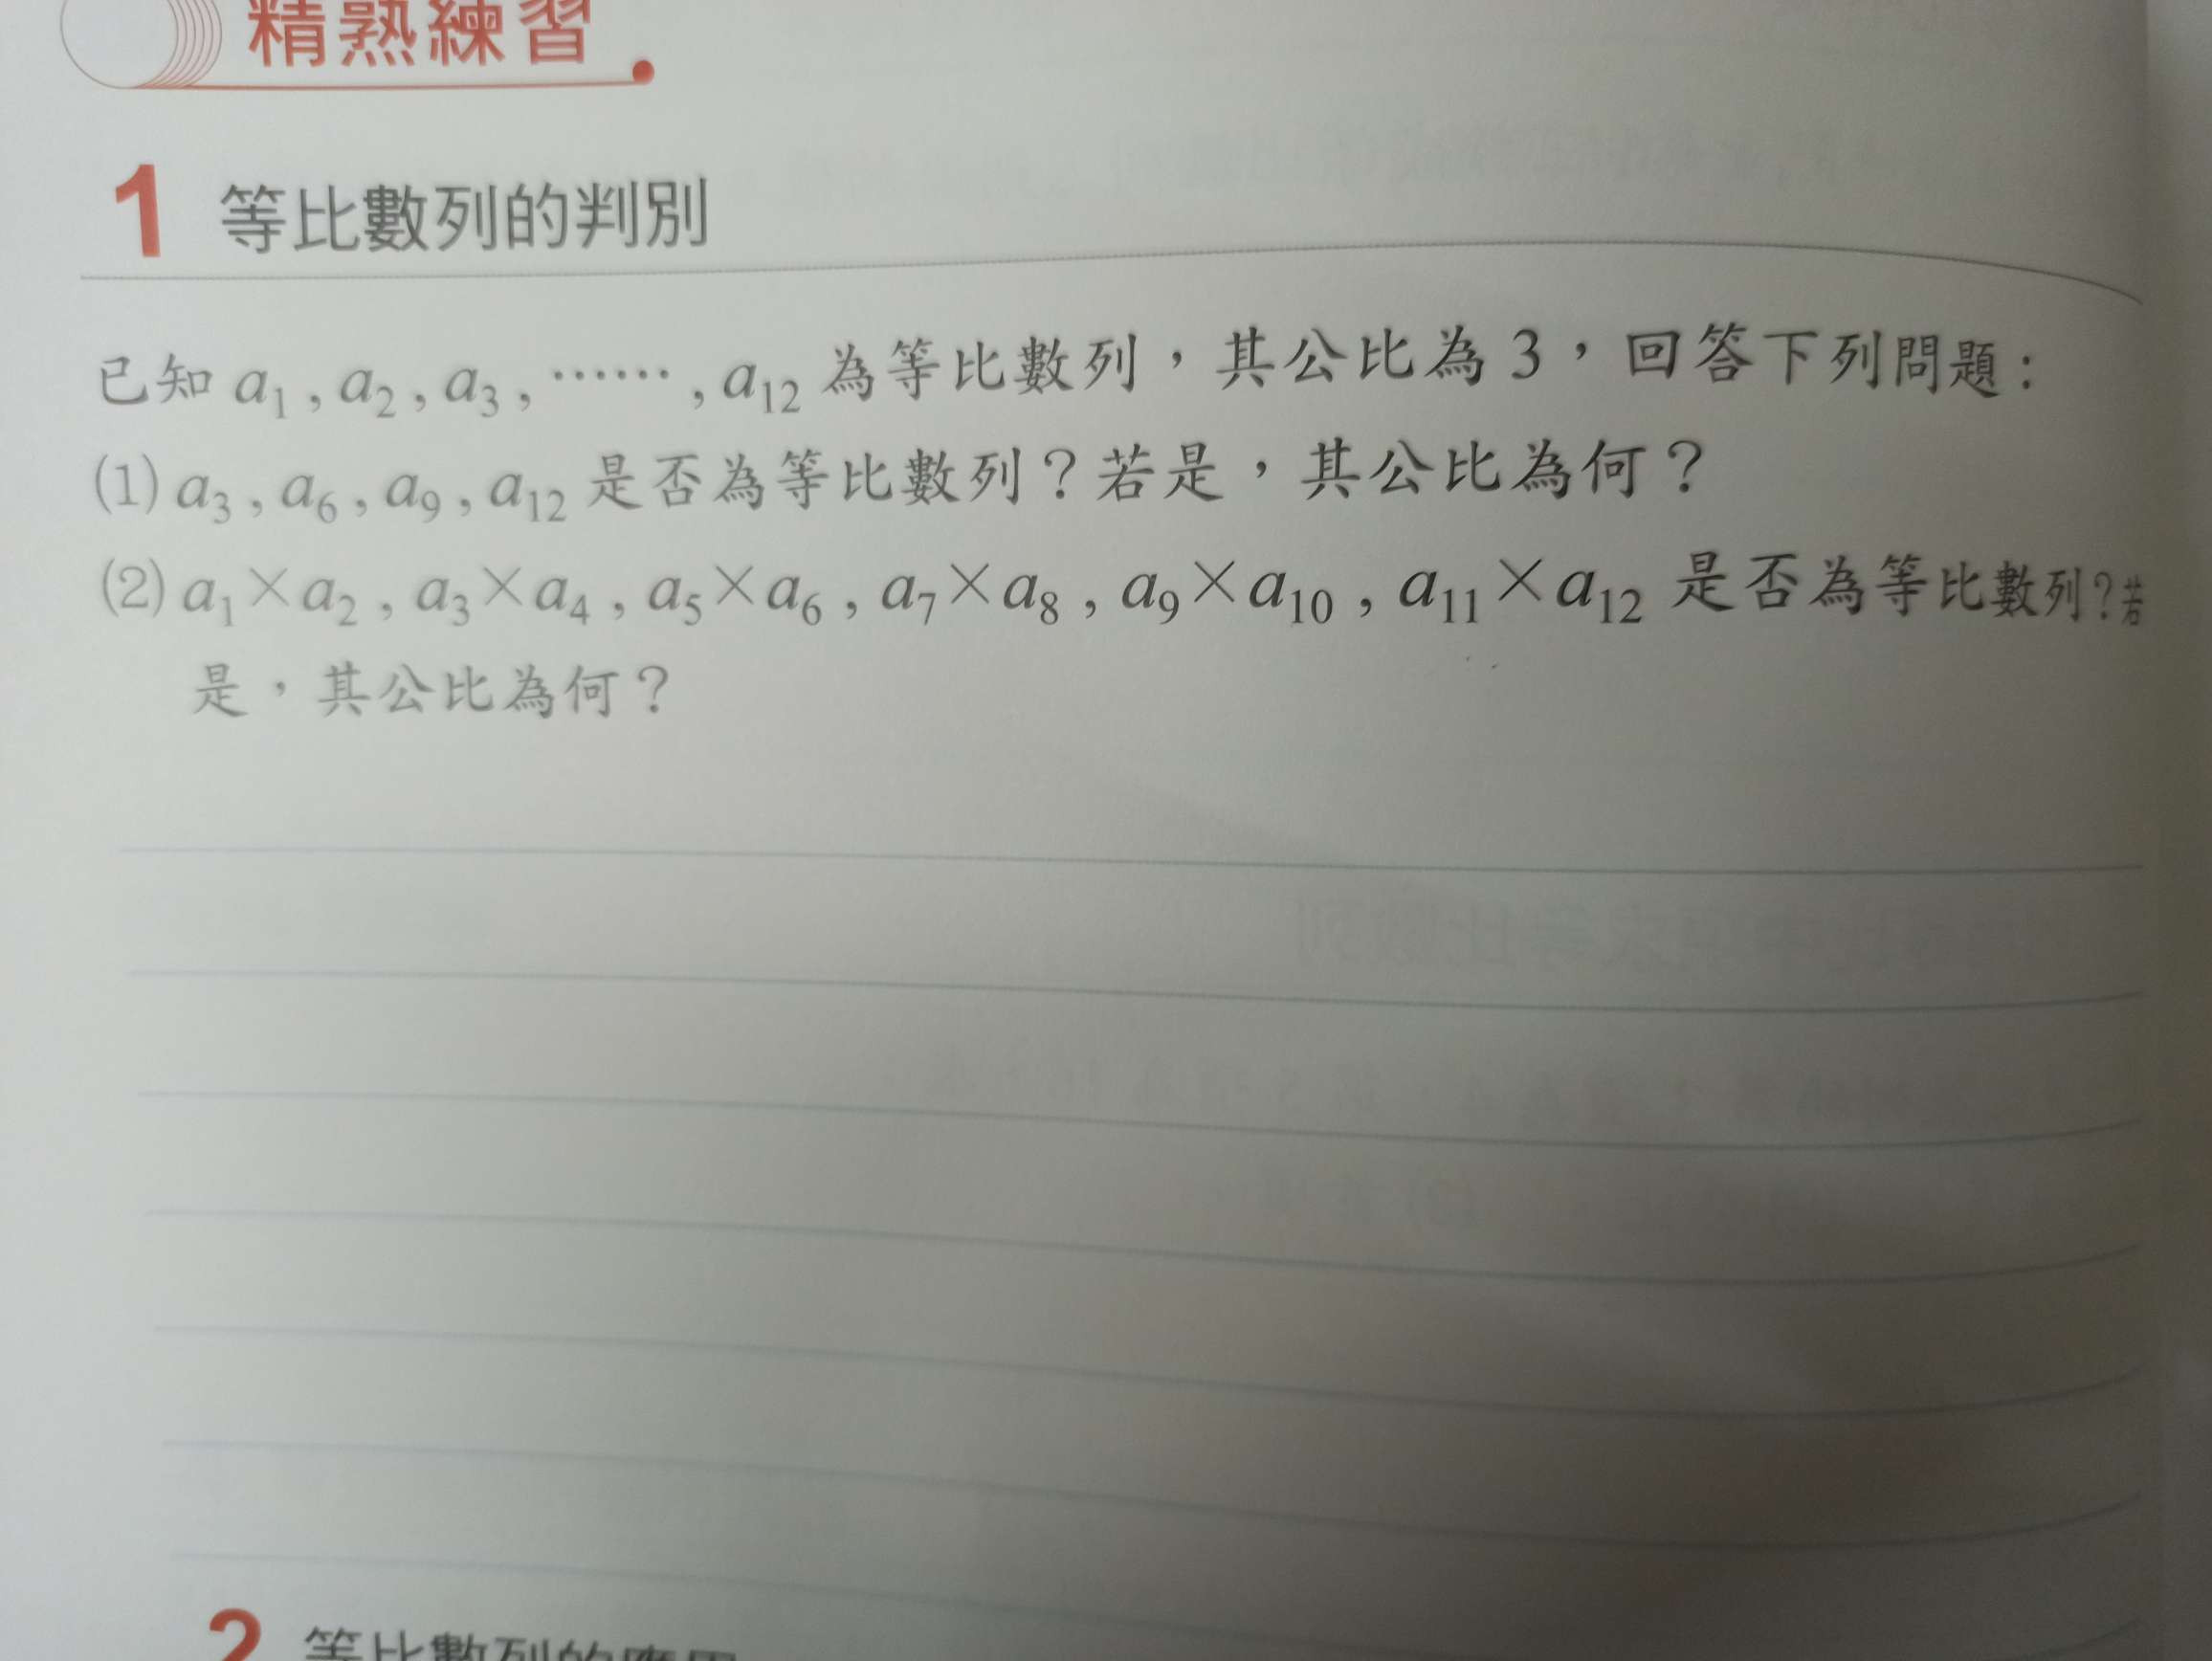 精熟練習
1 等比數列的判別
已知 a₁ , a₂ , a₃ , …… , a₁₂ 為等比數列，其公比為 3，回答下列問題：
(1) a₃ , a₆ , a₉ , a₁₂ 是否為等比數列？若是，其公比為何？
(2) a₁×a₂ , a₃×a₄ , a₅×a₆ , a₇×a₈ , a₉×a₁₀ , a₁₁×a₁₂ 是否為等比數列？若
是，其公比為何？
2 等比數列的應用